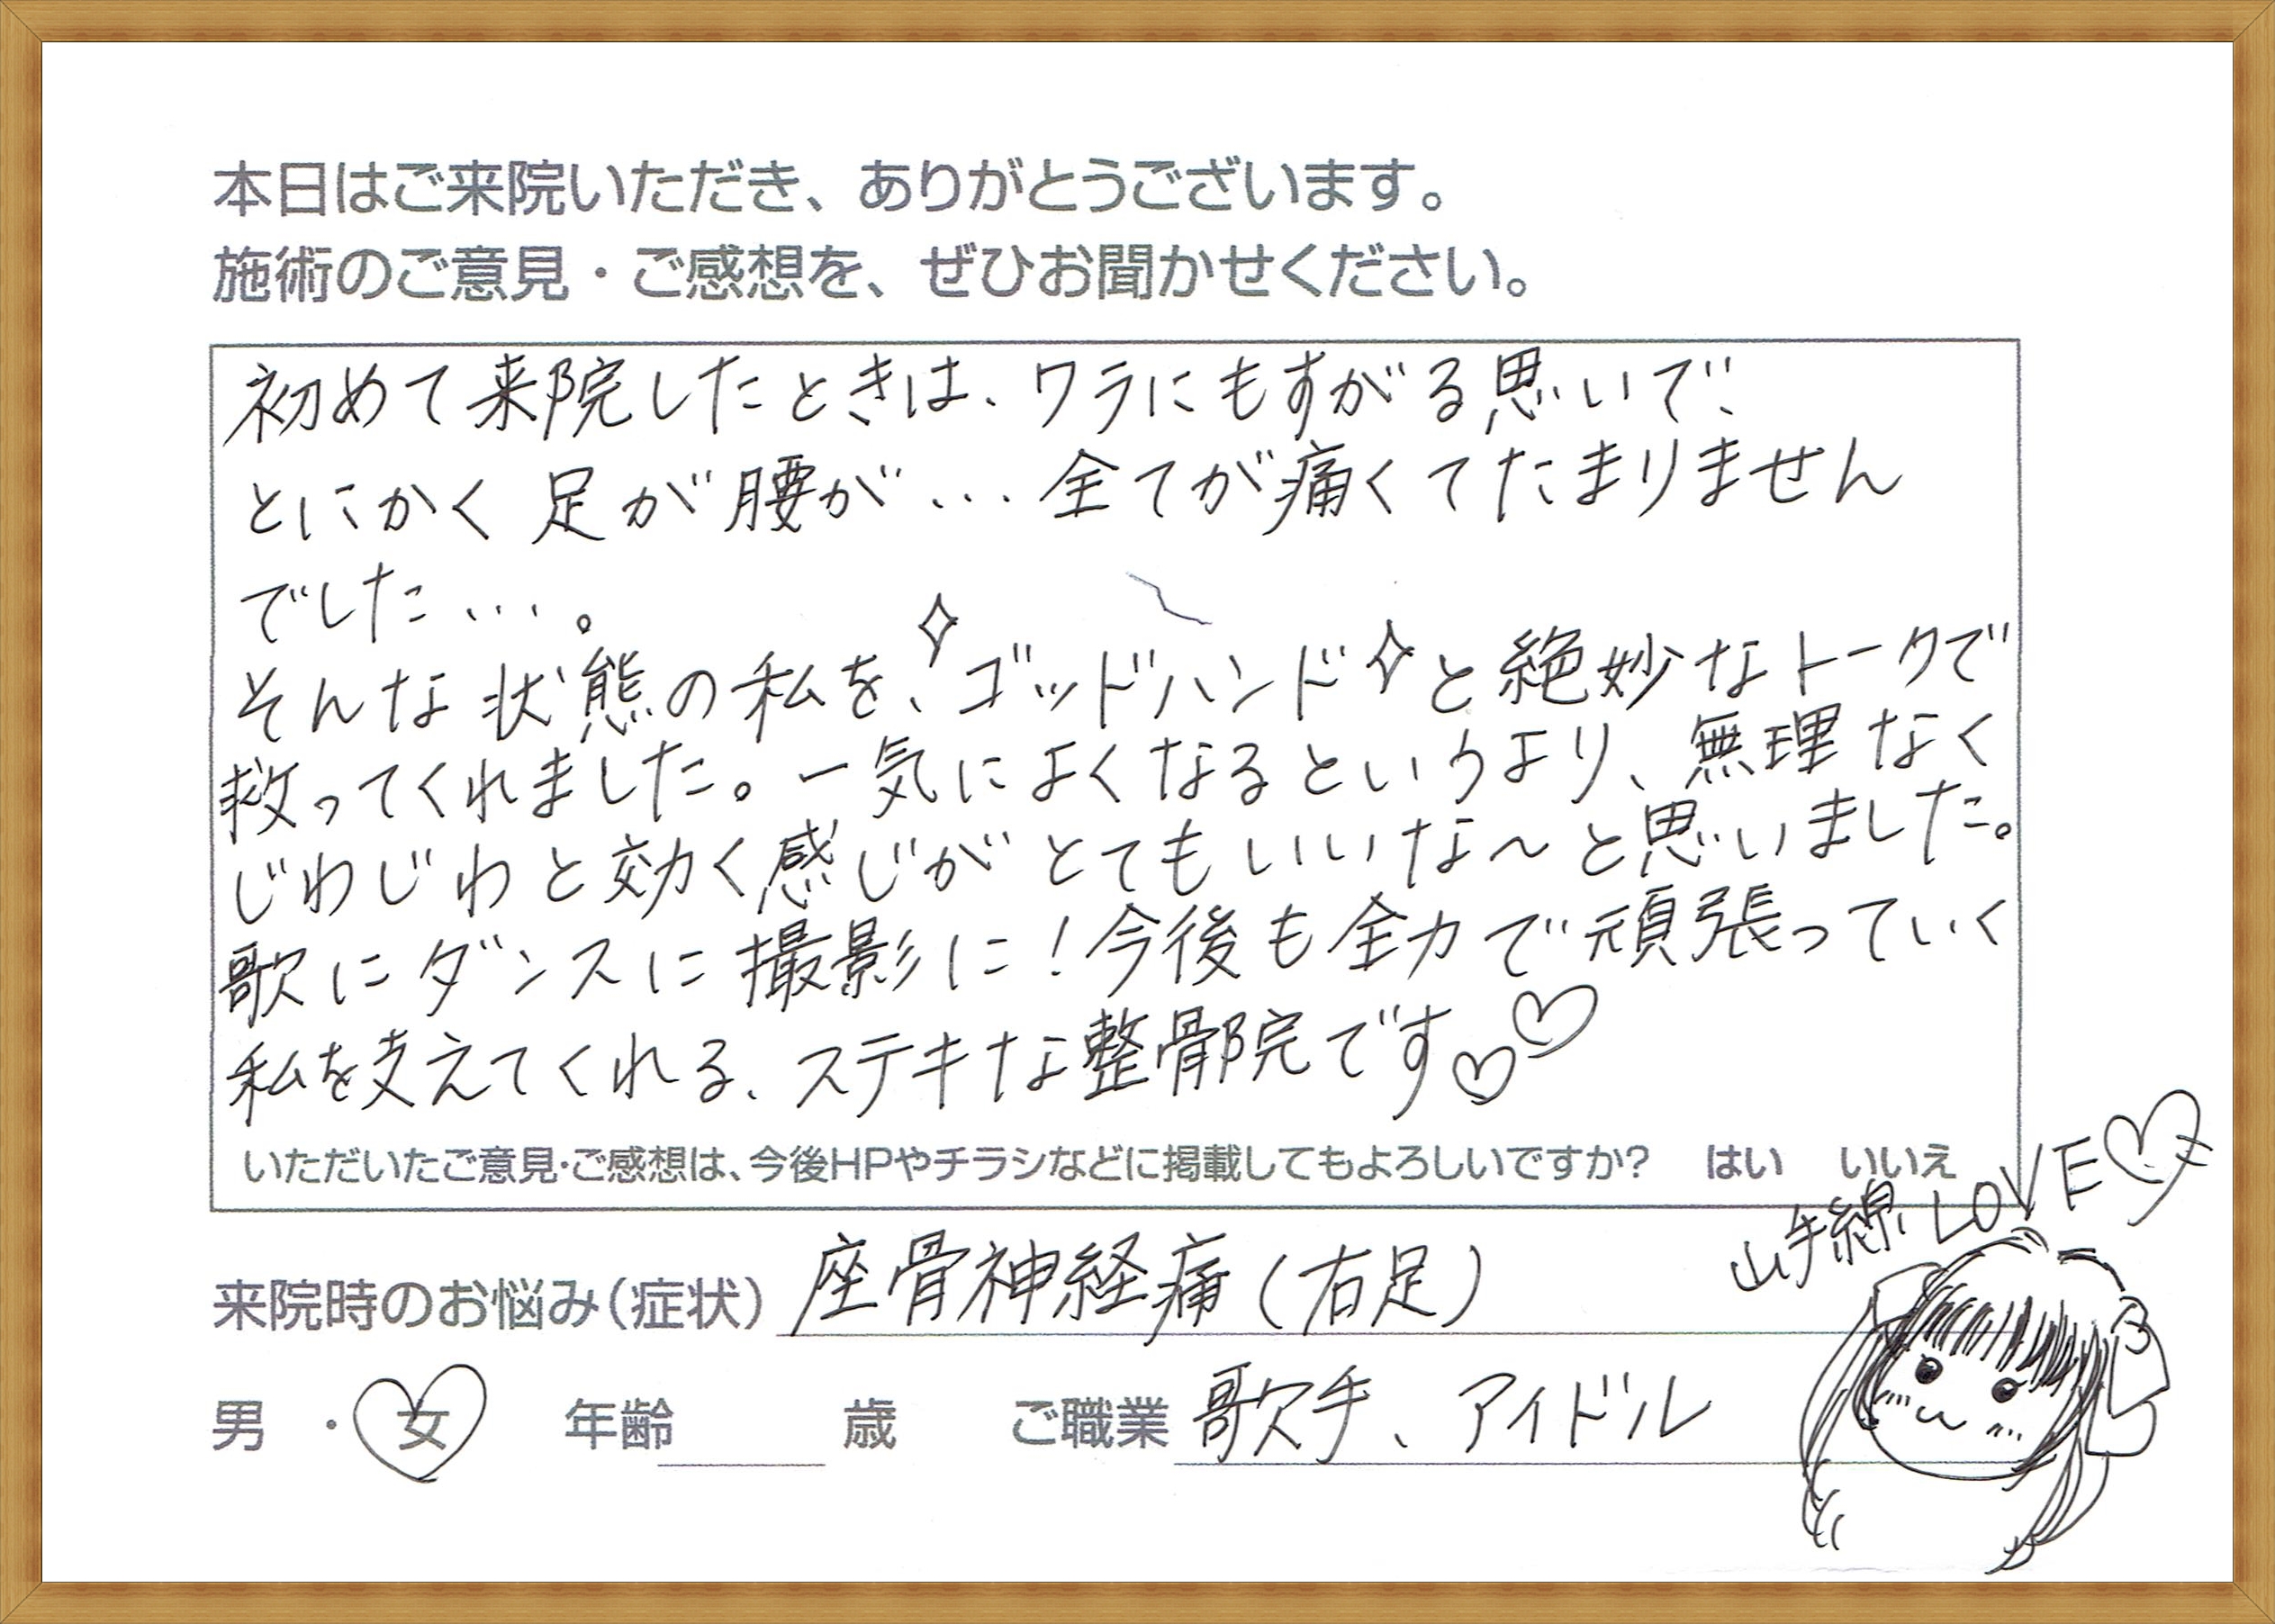 本日はご来院いただき、ありがとうございます。
施術のご意見・ご感想を、ぜひお聞かせください。
初めて来院したときは、ワラにもすがる思いで、
とにかく足が腰が…全てが痛くてたまりません
でした…。
そんな状態の私を、✧ゴッドハンド✧と絶妙なトークで
救ってくれました。一気によくなるというより、無理なく
じわじわと効く感じがとてもいいな〜と思いました。
歌にダンスに撮影に!今後も全力で頑張っていく
私を支えてくれる、ステキな整骨院です♡♡
いただいたご意見・ご感想は、今後HPやチラシなどに掲載してもよろしいですか? はい いいえ
山手線LOVE♡
来院時のお悩み(症状) 座骨神経痛(右足)
男 ・ 女 年齢 歳 ご職業 歌手、アイドル